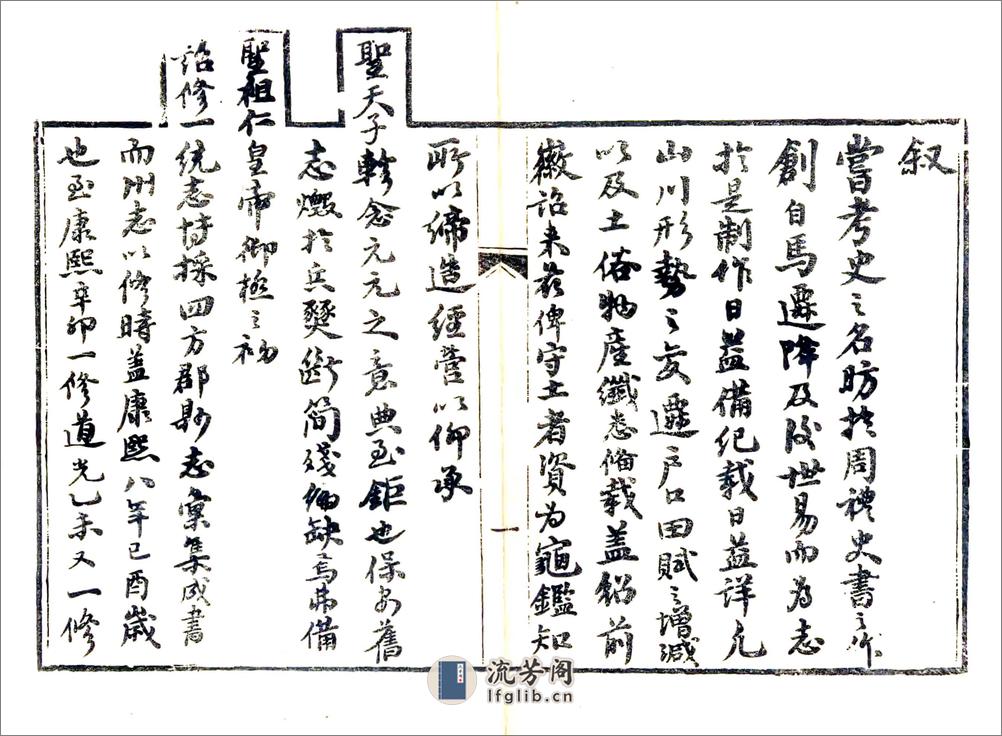 叙
嘗考史之名昉於周禮史書之作
創自馬遷降及後世易而為志
於是制作日益備紀载日益详凡
山川形勢之变遷户口田赋之增减
以及土俗物產纖悉俻载盖紹前
徽诏来兹俾守土者資为龜鑑知
一
所以締造經营以仰承
聖天子軫念元元之意典至鉅也保安舊
志燬於兵燹断简殘编缺焉弗備
聖祖仁皇帝御極之初
詔修一统志特採四方郡縣志彙集成書
而州志以修時盖康熙八年己酉歲
也至康熙辛卯一修道光乙未又一修
流芳阁
lfglib.cn